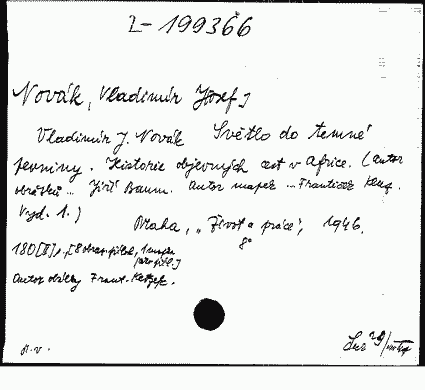 Z-199366
Novák, Vladimír Josef]
Vladimír J. Novák Světlo do temné
pevniny. Historie objevných cest v Africe. (Autor
obrázků... Jiří Baum. Autor mapek ... František
Vyd. 1.)
Praha, „Život a práce", 1946.
8°
180[II] s., [8 obraz. příloh, 1 mapa
Autor obálky Frant.